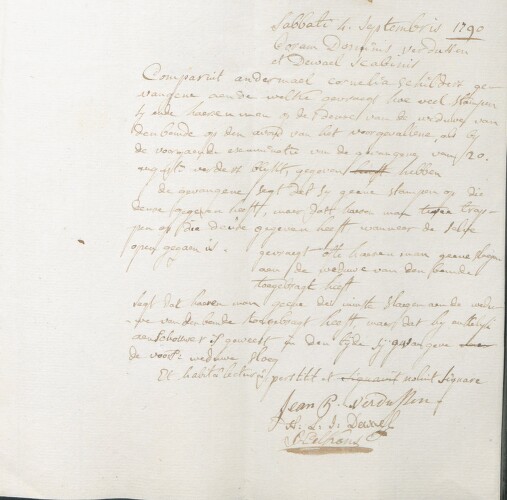 Sabbati 4 Septembris 1790
Coram Dominis Verdussen
et Dewael Scabinis
Comparuit andermael Cornelia Schilders ge-
vangene aen de welke gevraegt hoe veel stampen
sy ende haeren man op de deure van de weduwe van
den bende op den avond van het voorgevallene, als by
de voorgaende examinatie van de gevangene van 20.
augusti verders blykt, gegeven hebben
de gevangene segt dat sy geene stampen op die
deure gegeven heeft, maer datt haren man twee trap-
pen op die deure gegeven heeft wanneer de selve
open gegaen is.
gevraegt oft haeren man geene slagen
aen de weduwe van den bende
toegebragt heeft
segt dat haeren man geene de minste slagen aen de wedu-
we van den bende toegebragt heeft, maer dat hy
aenschouwer is geweest den tyde sy gevangene
de voors: weduwe sloeg
Et habita lectura perstitit et noluit signare
Jean P. Verdussen
A. L. J. Dewael